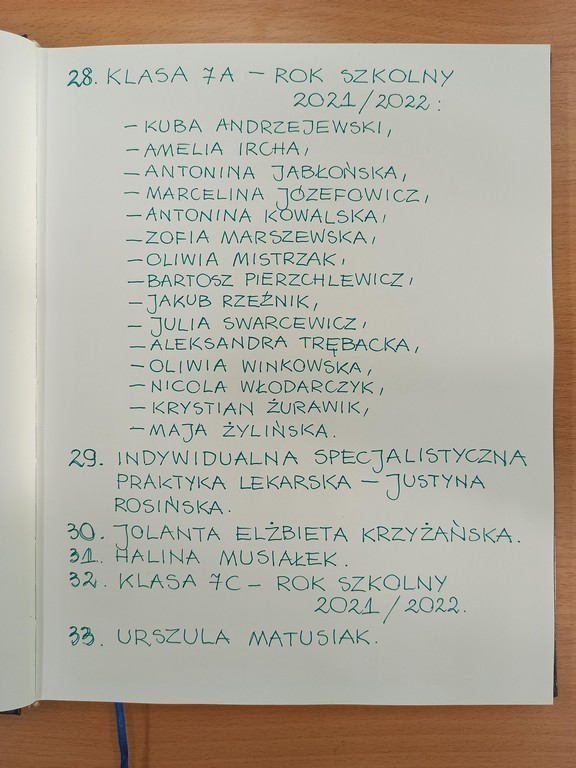 28. KLASA 7A – ROK SZKOLNY
2021/2022:
– KUBA ANDRZEJEWSKI,
– AMELIA IRCHA,
– ANTONINA JABŁOŃSKA,
– MARCELINA JÓZEFOWICZ,
– ANTONINA KOWALSKA,
– ZOFIA MARSZEWSKA,
– OLIWIA MISTRZAK,
– BARTOSZ PIERZCHLEWICZ,
– JAKUB RZEŹNIK,
– JULIA SWARCEWICZ,
– ALEKSANDRA TRĘBACKA,
– OLIWIA WINKOWSKA,
– NICOLA WŁODARCZYK,
– KRYSTIAN ŻURAWIK,
– MAJA ŻYLIŃSKA.
29. INDYWIDUALNA SPECJALISTYCZNA
PRAKTYKA LEKARSKA – JUSTYNA
ROSIŃSKA.
30. JOLANTA ELŻBIETA KRZYŻAŃSKA.
31. HALINA MUSIAŁEK.
32. KLASA 7C – ROK SZKOLNY
2021/2022.
33. URSZULA MATUSIAK.